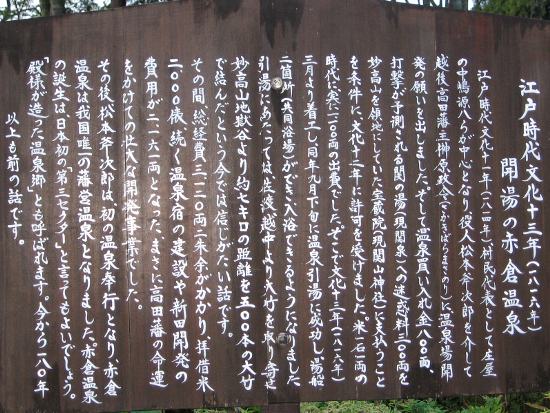 江戸時代文化十三年(一八一六年)
開湯の赤倉温泉
江戸時代文化十一年(一八一四年)村民代表として庄屋
の中嶋源八らが中心となり役人松本斧次郎を介して
越後高田藩主榊原政令(さかきばらまさのり)に温泉場開
発の願いを出しました。そして温泉買い入れ金八〇〇両、
打撃が予測される関の湯(現関温泉)への迷惑料三〇〇両を
妙高山を領地としていた宝蔵院(現関山神社)に支払うこと
を条件に、文化十二年に許可を受けました。米一石一両の
時代に実に二一〇〇両の出費でした。そこで文化十三年(一八一六年)
三月より着工し同年九月下旬に温泉引湯に成功し湯船
二箇所(共同浴場)ができ入浴できるようになりました。
引湯にあたっては、佐渡越中より大竹を取り寄せ
妙高山地獄谷より約七キロの距離を五〇〇本の大竹
で結んだという今では信じがたい話です。
その間、総経費三一二〇両二朱余がかかり、拝借米
二〇〇〇俵、続く温泉宿の建設や新田開発の
費用が二一六二両となった、まさに高田藩の命運
をかけての壮大な開発事業でした。
その後松本斧次郎は、初の温泉奉行となり、赤倉
温泉は我国唯一の藩営温泉となりました。赤倉温泉
の誕生は、日本初の第三セクターと言ってもよいでしょう。
「殿様が造った温泉郷」とも呼ばれます。今から一八〇年
以上も前の話です。